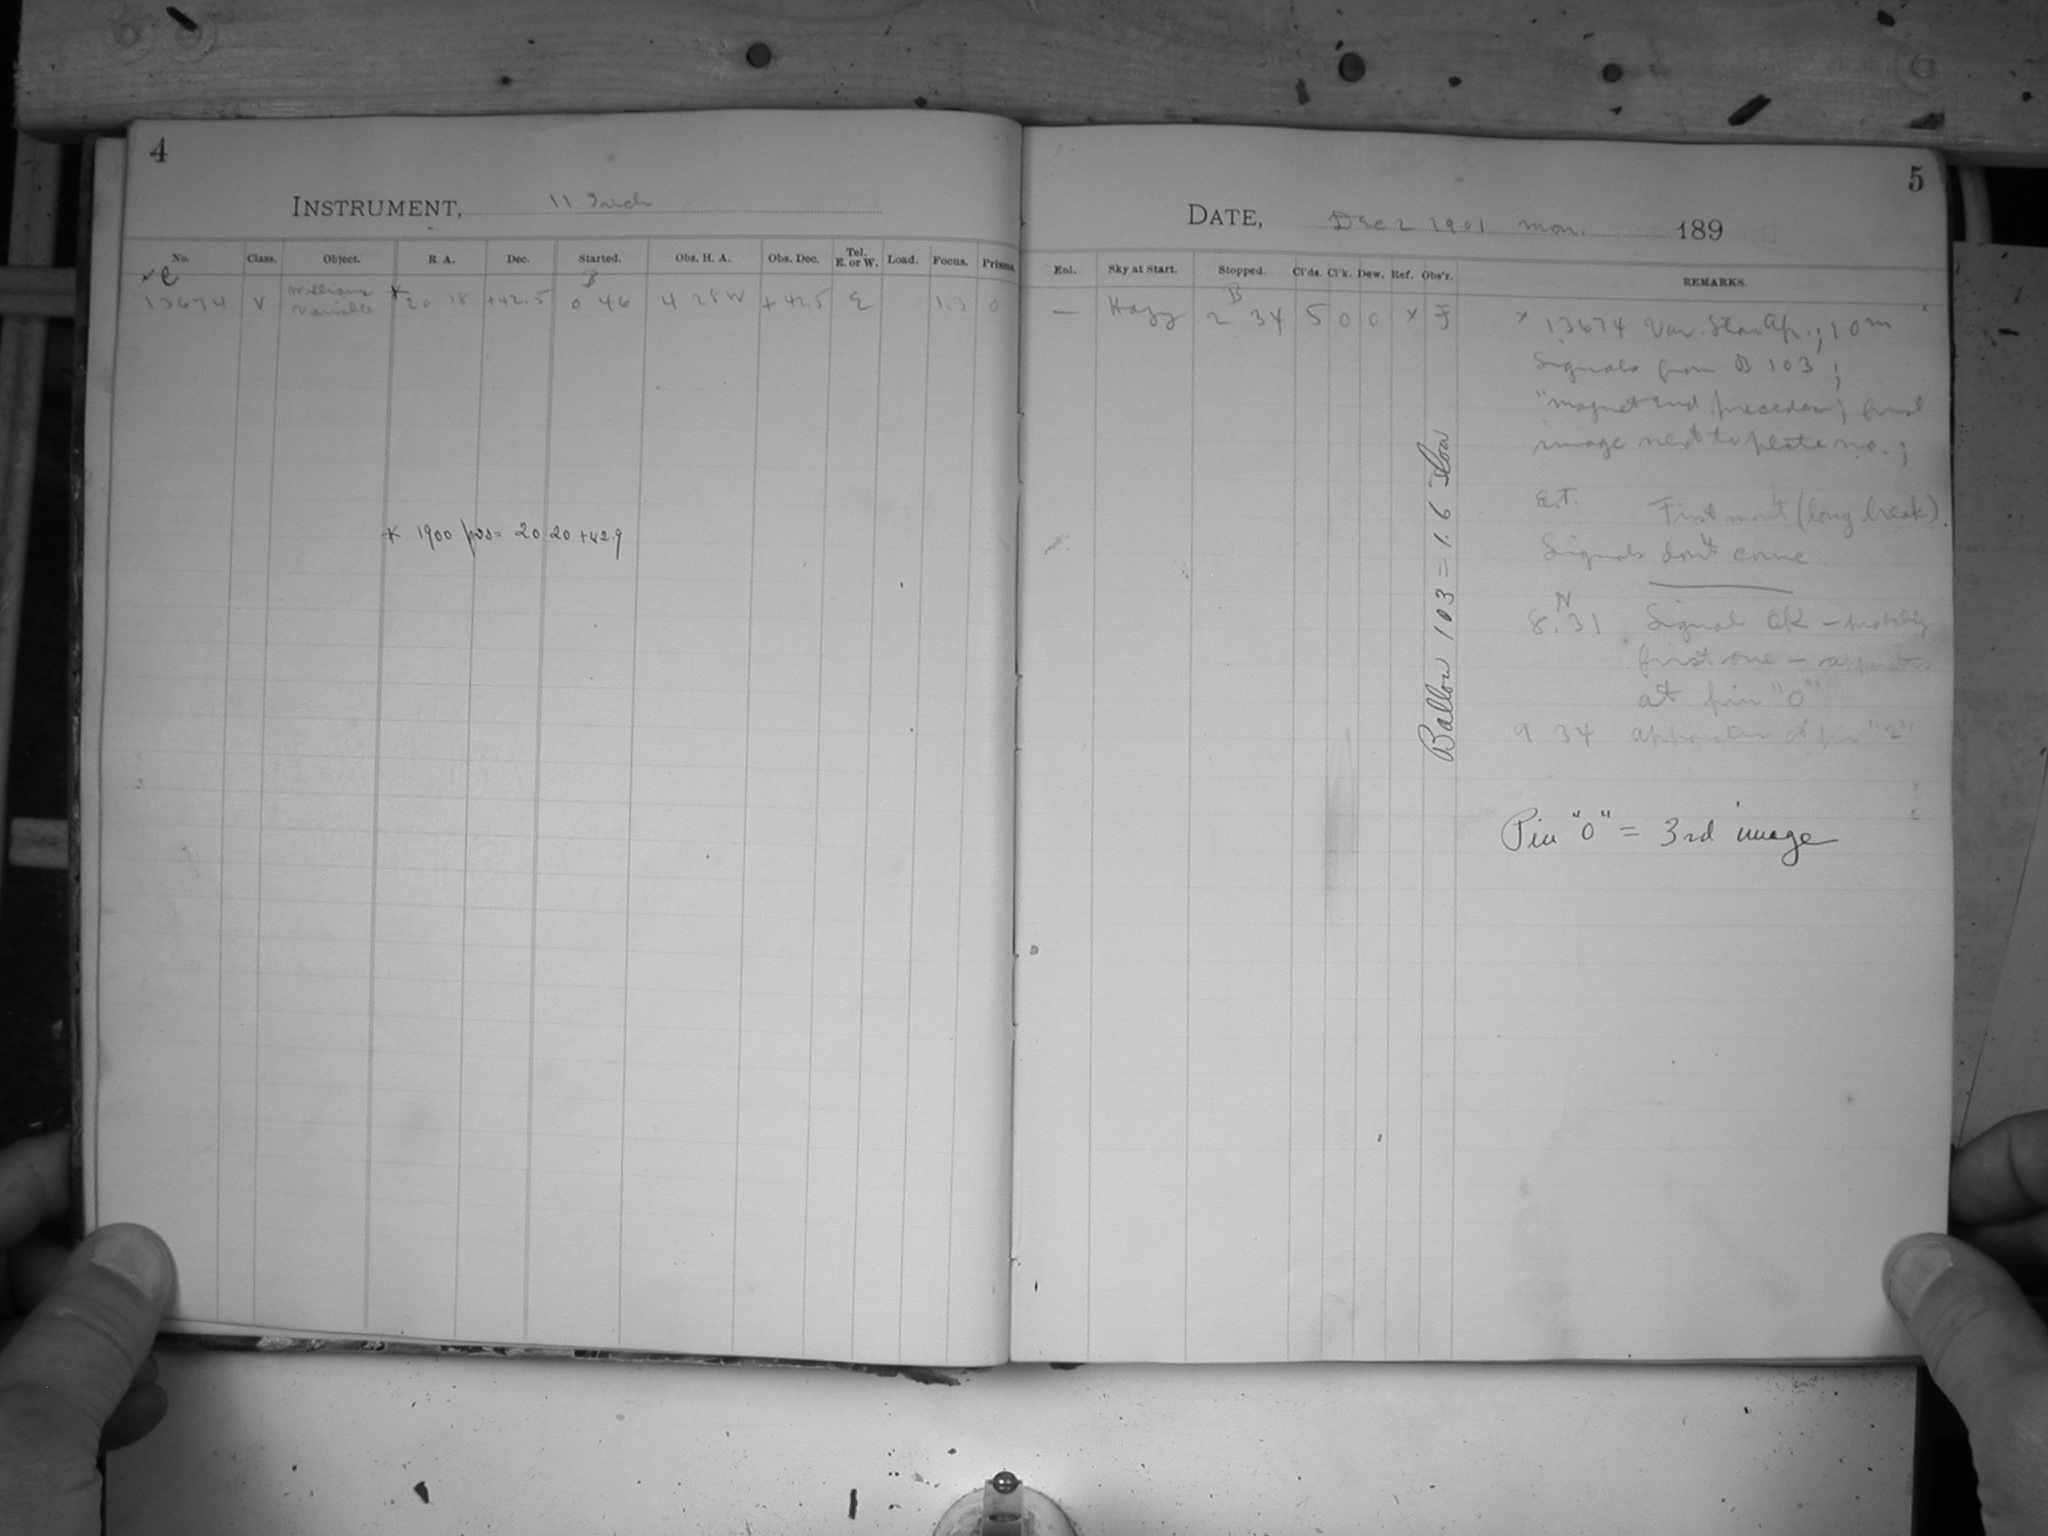 4
INSTRUMENT, 11 Inch
No. Class. Object. R A. Dec. Started. Obs. H. A. Obs. Dec. Tel. E. or W. Load. Focus. Prisms.
C B
13674 V Williams Variable * 20 18 +42.5 0 46 4 28 W +42.5 E 1.3 0
* 1900 pos = 20 20 +42.9
5
DATE, Dec 2 1901 Mon. 189
Enl. Sky at Start. Stopped. Cl'ds. Cl'k. Dew. Ref. Obs'r. REMARKS.
B
— Hazy 2 34 5 0 0 x F
x 13674 Var. Star Ap.; 10m
Signals from B 103;
"magnet end precedes; first
image next to plate no.;
E.T. First mo't (long break).
Signals don't come.
N
8.31 Signal OK — probably
first one — apparatus
at pin "0"
9 34 apparatus at pin "2"
Pin "0" = 3rd image
Ballou 103 = 1.6 slow